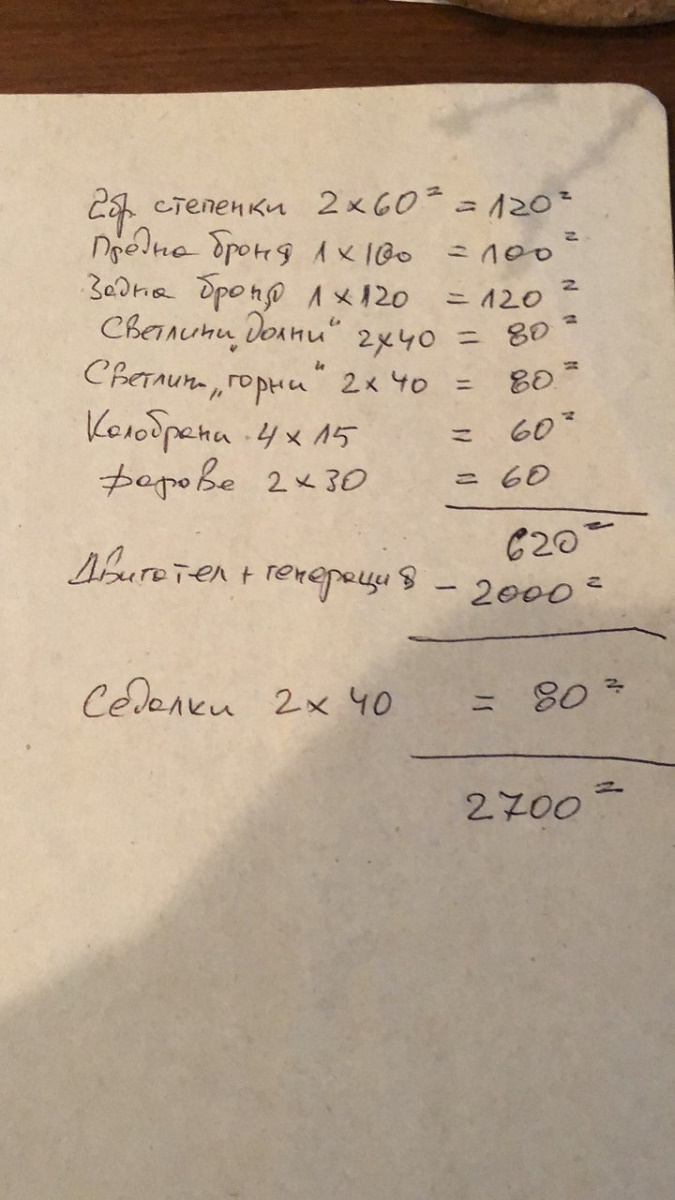 2бр. степенки 2 x 60 = = 120 =
Предна броня 1 x 100 = 100 =
Задна броня 1 x 120 = 120 =
Светлини „долни“ 2 x 40 = 80 =
Светлин „горни“ 2 x 40 = 80 =
Калобрани 4 x 15 = 60 =
фарове 2 x 30 = 60
620 =
Двигател + генерация - 2000 =
Седалки 2 x 40 = 80 =
2700 =